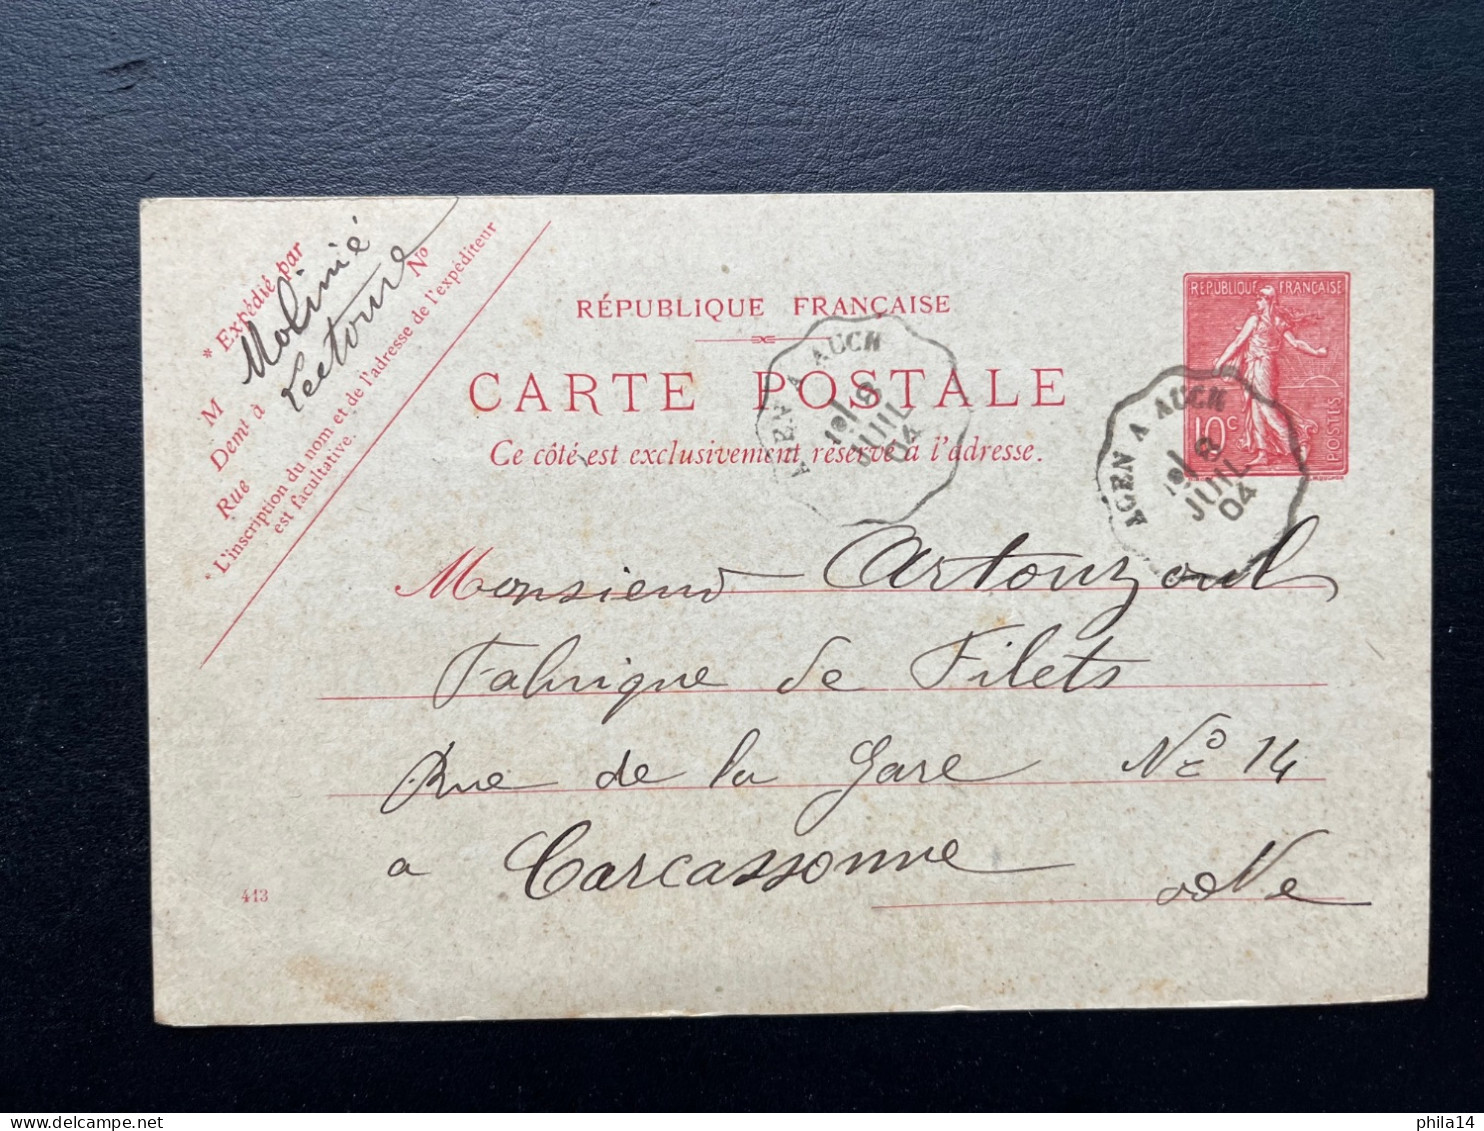 * Expédié par
M Molinié
Demt à Lectoure
Rue No
* L'inscription du nom et de l'adresse de l'expéditeur
est facultative.
RÉPUBLIQUE FRANÇAISE
CARTE POSTALE
Ce côté est exclusivement réservé à l'adresse.
AGEN A AUCH
JUIL
04
RÉPUBLIQUE FRANÇAISE
10 c
POSTES
AGEN A AUCH
JUIL
04
Monsieur Artouzoul
Fabrique de Filets
Rue de la Gare No 14
a Carcassonne
413
phila14